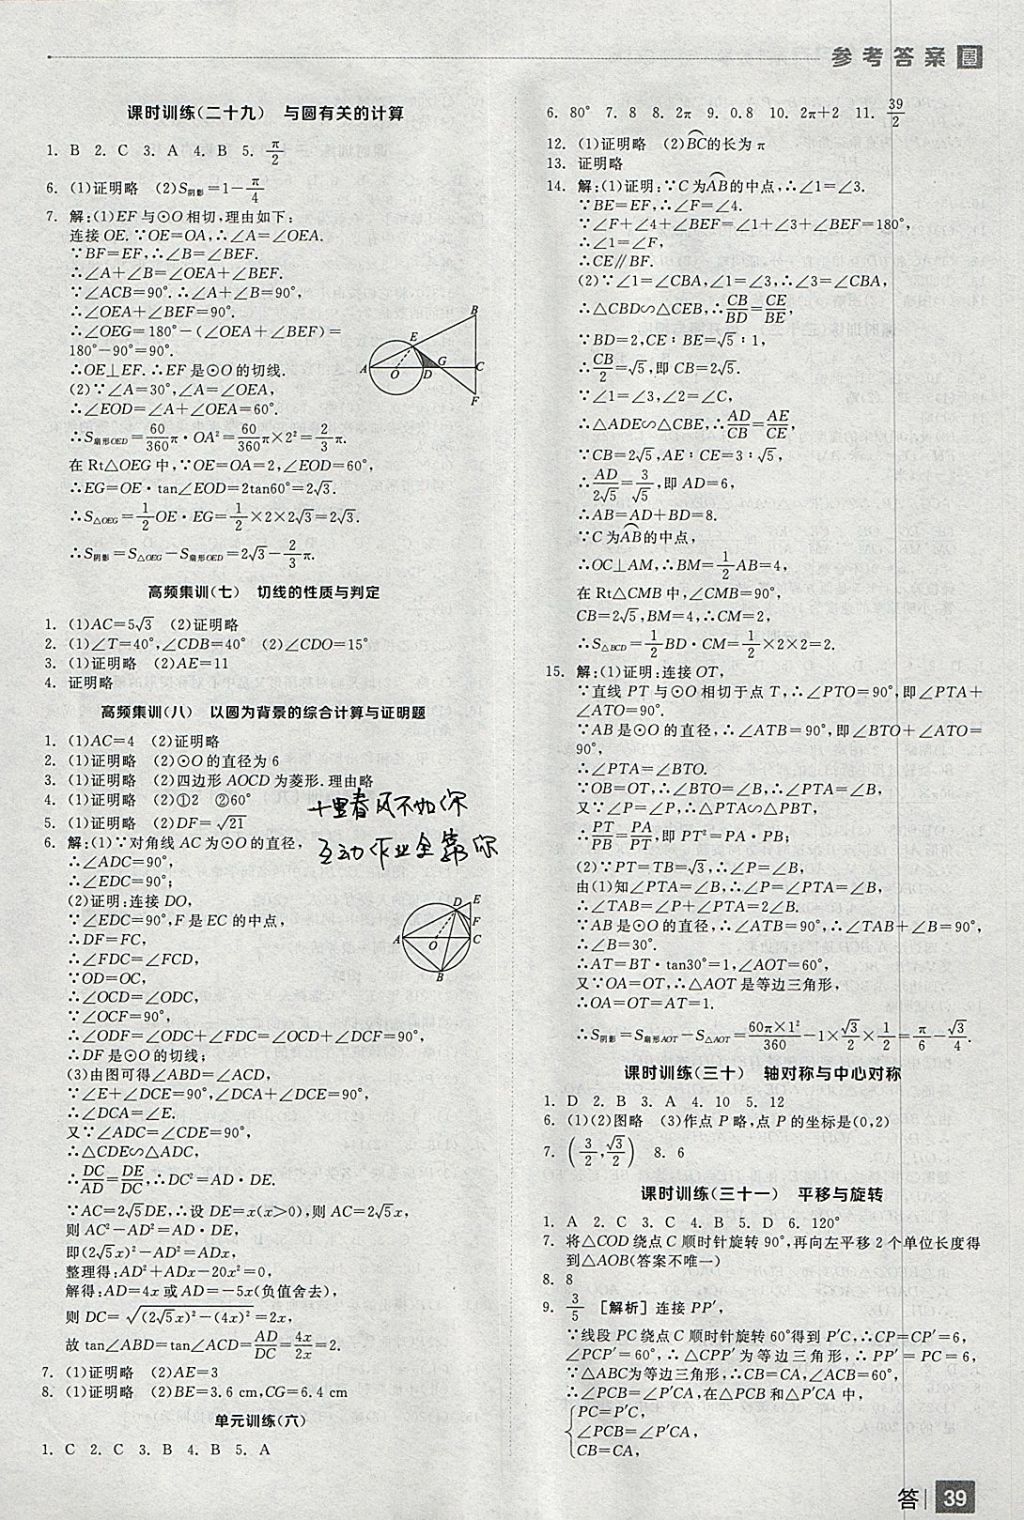 参考答案
课时训练(二十九) 与圆有关的计算
1. B 2. C 3. A 4. B 5. π/2
6. (1)证明略 (2)S阴影=1-π/4
7. 解:(1)EF与⊙O相切,理由如下:
连接OE.∵OE=OA,∴∠A=∠OEA.
∵BF=EF,∴∠B=∠BEF.
∴∠A+∠B=∠OEA+∠BEF.
∵∠ACB=90°.∴∠A+∠B=90°,
∴∠OEA+∠BEF=90°.
∴∠OEG=180°-(∠OEA+∠BEF)=
180°-90°=90°.
∴OE⊥EF.∴EF是⊙O的切线.
(2)∵∠A=30°,∠A=∠OEA,
∴∠EOD=∠A+∠OEA=60°.
∴S扇形OED=60/360π·OA²=60/360π×2²=2/3π.
在Rt△OEG中,∵OE=OA=2,∠EOD=60°,
∴EG=OE·tan∠EOD=2tan60°=2√3.
∴S△OEG=1/2OE·EG=1/2×2×2√3=2√3.
∴S阴影=S△OEG-S扇形OED=2√3-2/3π.
A O D G C E B F
高频集训(七) 切线的性质与判定
1. (1)AC=5√3 (2)证明略
2. (1)∠T=40°,∠CDB=40° (2)∠CDO=15°
3. (1)证明略 (2)AE=11
4. 证明略
高频集训(八) 以圆为背景的综合计算与证明题
1. (1)AC=4 (2)证明略
2. (1)证明略 (2)⊙O的直径为6
3. (1)证明略 (2)四边形AOCD为菱形.理由略
4. (1)证明略 (2)①2 ②60°
5. (1)证明略 (2)DF=√21
十里春风不如你
互动作业全靠你
6. 解:(1)∵对角线AC为⊙O的直径,
∴∠ADC=90°,
∴∠EDC=90°;
(2)证明:连接DO,
∵∠EDC=90°,F是EC的中点,
∴DF=FC,
∴∠FDC=∠FCD,
∵OD=OC,
∴∠OCD=∠ODC,
∵∠OCF=90°,
∴∠ODF=∠ODC+∠FDC=∠OCD+∠DCF=90°,
∴DF是⊙O的切线;
(3)由图可得∠ABD=∠ACD,
∵∠E+∠DCE=90°,∠DCA+∠DCE=90°,
∴∠DCA=∠E.
又∵∠ADC=∠CDE=90°,
∴△CDE∽△ADC,
∴DC/AD=DE/DC,∴DC²=AD·DE.
∵AC=2√5DE,∴设DE=x(x>0),则AC=2√5x,
则AC²-AD²=AD·DE,
即(2√5x)²-AD²=ADx,
整理得:AD²+ADx-20x²=0,
解得:AD=4x或AD=-5x(负值舍去),
则DC=√((2√5x)²-(4x)²)=2x,
故tan∠ABD=tan∠ACD=AD/DC=4x/2x=2.
D E F A O C B
7. (1)证明略 (2)AE=3
8. (1)证明略 (2)BE=3.6 cm,CG=6.4 cm
单元训练(六)
1. C 2. C 3. B 4. B 5. A
6. 80° 7. 8 8. 2π 9. 0.8 10. 2π+2 11. 39/2
12. (1)证明略 (2)BC的长为π
13. 证明略
14. 解:(1)证明:∵C为AB的中点,∴∠1=∠3.
∵BE=EF,∴∠F=∠4.
∵∠F+∠4+∠BEF=∠1+∠3+∠BEF=180°,
∴∠1=∠F,
∴CE∥BF.
(2)∵∠1=∠CBA,∠1=∠3,∴∠3=∠CBA,
∴△CBD∽△CEB,∴CB/BD=CE/BE,
∵BD=2,CE∶BE=√5∶1,
∴CB/2=√5,即CB=2√5.
∵∠1=∠3,∠2=∠C,
∴△ADE∽△CBE,∴AD/CB=AE/CE,
∵CB=2√5,AE∶CE=3∶√5,
∴AD/2√5=3/√5,即AD=6,
∴AB=AD+BD=8.
∵C为AB的中点,
∴OC⊥AM,∴BM=1/2AB=4,
在Rt△CMB中,∠CMB=90°,
CB=2√5,BM=4,∴CM=2,
∴S△BCD=1/2BD·CM=1/2×2×2=2.
15. 解:(1)证明:连接OT,
∵直线PT与⊙O相切于点T,∴∠PTO=90°,即∠PTA+
∠ATO=90°.
∵AB是⊙O的直径,∴∠ATB=90°,即∠BTO+∠ATO=
90°,
∴∠PTA=∠BTO.
∵OB=OT,∴∠BTO=∠B,∴∠PTA=∠B,
又∵∠P=∠P,∴△PTA∽△PBT,
∴PT/PB=PA/PT,即PT²=PA·PB;
(2)∵PT=TB=√3,∴∠P=∠B,
由(1)知∠PTA=∠B,∴∠P=∠PTA=∠B,
∴∠TAB=∠P+∠PTA=2∠B.
∵AB是⊙O的直径,∴∠ATB=90°,∴∠TAB+∠B=90°,
∴∠B=30°.
∴AT=BT·tan30°=1,∠AOT=60°,
又∵OA=OT,∴△AOT是等边三角形,
∴OA=OT=AT=1.
∴S阴影=S扇形AOT-S△AOT=60π×1²/360-1×√3/2×1/2=π/6-√3/4.
课时训练(三十) 轴对称与中心对称
1. D 2. B 3. A 4. 10 5. 12
6. (1)(2)图略 (3)作点P略,点P的坐标是(0,2)
7. (3/2,√3/2) 8. 6
课时训练(三十一) 平移与旋转
1. A 2. C 3. C 4. B 5. D 6. 120°
7. 将△COD绕点C顺时针旋转90°,再向左平移2个单位长度得
到△AOB(答案不唯一)
8. 8
9. 3/5 [解析]连接PP′,
∵线段PC绕点C顺时针旋转60°得到P′C,∴CP=CP′=6,
∠PCP′=60°,∴△CPP′为等边三角形,∴PP′=PC=6,
∵△ABC为等边三角形,∴CB=CA,∠ACB=60°,
∴∠PCB=∠P′CA,在△PCB和△P′CA中,
PC=P′C,
∠PCB=∠P′CA,
CB=CA,
答 39